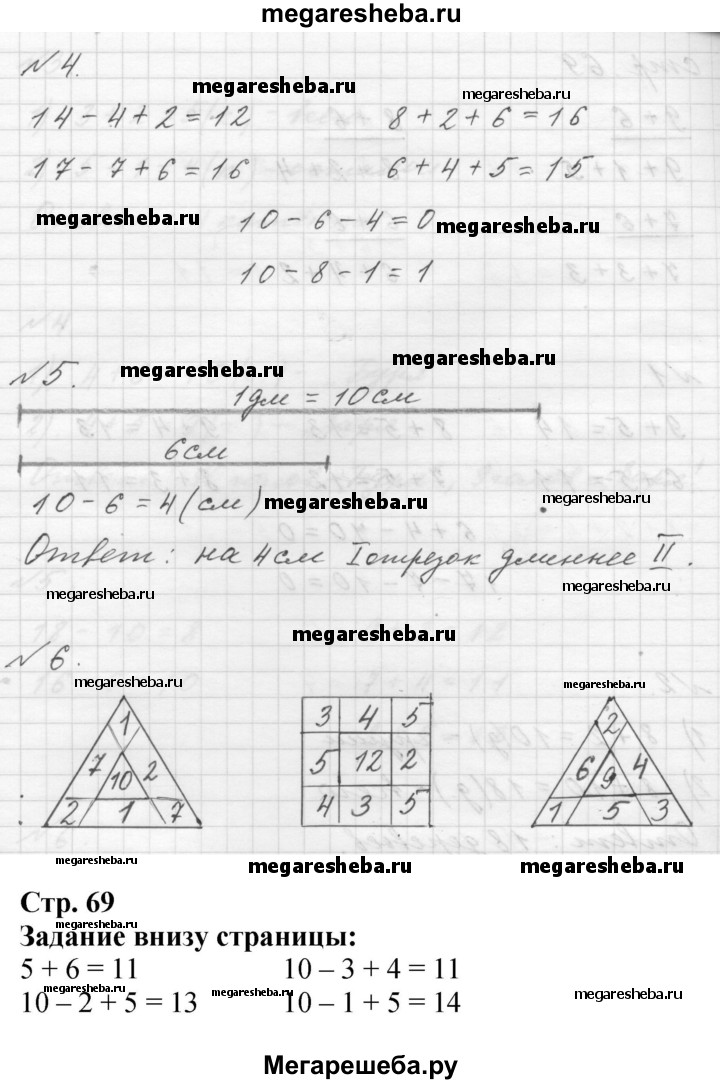 megaresheba.ru
№ 4.
megaresheba.ru
megaresheba.ru
14 - 4 + 2 = 12 8 + 2 + 6 = 16
17 - 7 + 6 = 16 6 + 4 + 5 = 15
megaresheba.ru 10 - 6 - 4 = 0 megaresheba.ru
10 - 8 - 1 = 1
megaresheba.ru
№ 5. megaresheba.ru
1 дм = 10 см
6 см
10 - 6 = 4 (см) megaresheba.ru megaresheba.ru
Ответ: на 4 см I отрезок длиннее II.
megaresheba.ru megaresheba.ru
megaresheba.ru
№ 6.
megaresheba.ru megaresheba.ru
1 3 4 5 2
7 10 2 5 12 2 6 9 4
2 1 7 4 3 5 1 5 3
megaresheba.ru megaresheba.ru megaresheba.ru
Стр. 69
megaresheba.ru
Задание внизу страницы:
5 + 6 = 11 10 – 3 + 4 = 11
megaresheba.ru megaresheba.ru megaresheba.ru
10 – 2 + 5 = 13 10 – 1 + 5 = 14
Мегарешеба.ру